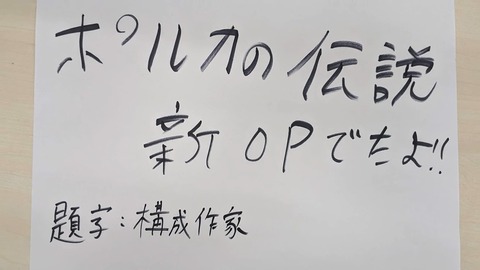 ポルカの伝説
新OPでたよ!!
題字:構成作家